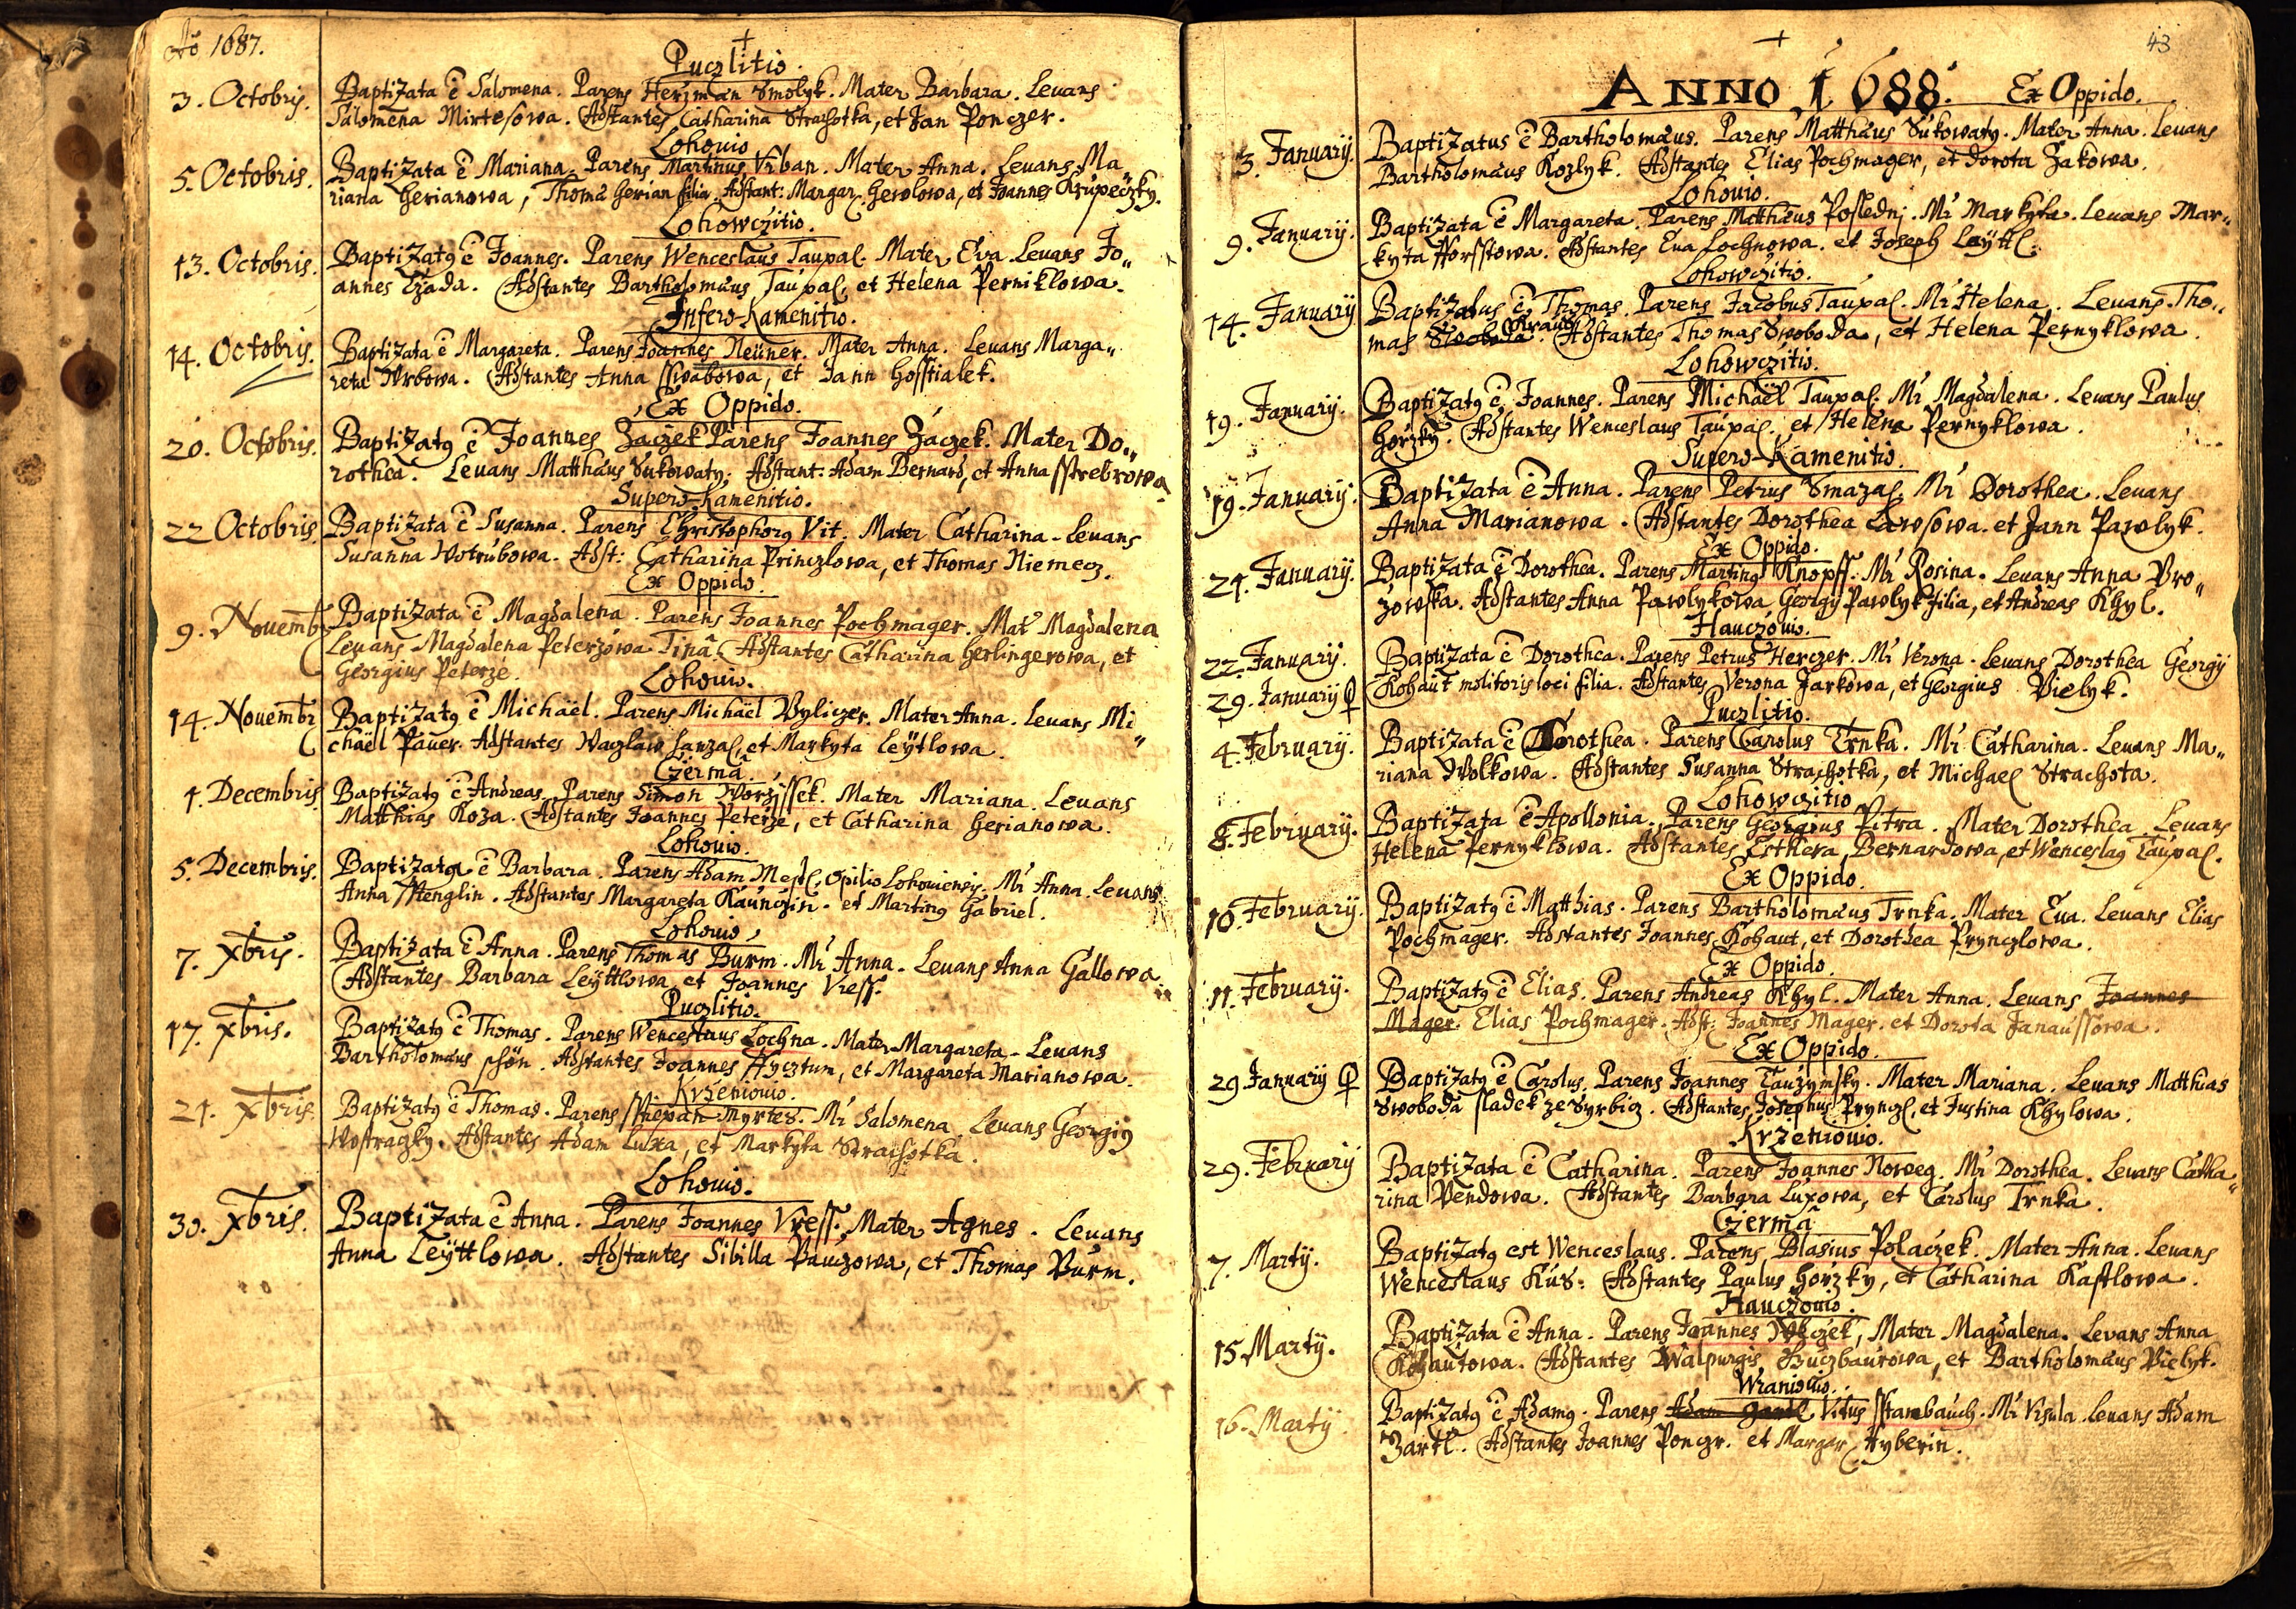 Aõ 1687.
Puczlitio.
3. Octobris. Baptizata ē Salomena. Parens Herzman Smolyk. Mater Barbara. Levans
Salomena Mirtesowa. Adstantes Catharina Strachotka, et Jan Ponczer.
Lohouio
5. Octobris. Baptizata ē Mariana. Parens Martinus Vrban. Mater Anna. Levans Ma„
riana Gerianowa, Thomã Gerian filia. Adstant: Margar. Gerolowa, et Joannes Krupeczky.
Lohowczitio.
13. Octobris. Baptizatꝯ ē Joannes. Parens Wenceslaus Taupal. Mater Eva. Levans Jo„
annes Czada. Adstantes Bartholomäus Taupal, et Helena Perniklowa.
Infero-Kamenitio.
14. Octobris. Baptizata ē Margareta. Parens Joannes Neüner. Mater Anna. Levans Marga„
reta Wrbowa. Adstantes Anna Sswabowa, et Jann Hosstialek.
Ex Oppido.
20. Octobris. Baptizatꝯ ē Joannes Zaczek Parens Joannes Zaczek. Mater Do„
rothea. Levans Matthäus Sukowaty. Adstant: Adam Bernard, et Anna Sstrebrowa
Supero-Kamenitio.
22 Octobris. Baptizata ē Susanna. Parens Christophorꝯ Vit. Mater Catharina. Levans
Susanna Wotrubowa. Adst: Catharina Princzlowa, et Thomas Niemecz.
Ex Oppido.
9. Nouembr Baptizata ē Magdalena. Parens Joannes Pochmager. Mat Magdalena
Levans Magdalena Peterzowa Tinã. Adstantes Catharina Gerlingerowa, et
Georgius Peterze.
Lohouio.
14. Nouembr Baptizatꝯ ē Michäel. Parens Michäel Byliczer. Mater Anna. Levans Mi„
chäel Pauer. Adstantes Waczlaw Hanzal, et Markyta Leytlowa.
Czermã.
4. Decembris. Baptizatꝯ ē Andreas. Parens Simon Worzissek. Mater Mariana. Levans
Matthias Koza. Adstantes Joannes Peterze, et Catharina Gerianowa.
Lohouio.
5. Decembris. Baptizata ē Barbara. Parens Adam Mestl, opilio Lohouiensis. Mr Anna. Levans
Anna Stenglin. Adstantes Margareta Kaunczin. et Martinꝯ Gabriel.
Lohouio
7. Xbris. Baptizata ē Anna. Parens Thomas Burm. Mr Anna. Levans Anna Gallowa.
Adstantes Barbara Leyttlowa, et Joannes Vress.
Puczlitio.
17. Xbris. Baptizatꝯ ē Thomas. Parens Wenceslaus Lochna. Mater Margareta. Levans
Bartholomäus Schön. Adstantes Joannes Hycztum, et Margareta Marianowa.
Krzeniouio.
21. Xbris. Baptizatꝯ ē Thomas. Parens Sstepan Myrtes. Mr Salomena. Levans Georgiꝯ
Wostraczky. Adstantes Adam Luxa, et Markyta Strachotka.
Lohouio.
30. Xbris. Baptizata ē Anna. Parens Joannes Vress. Mater Agnes. Levans
Anna Leyttlowa. Adstantes Sibilla Pauczowa, et Thomas Burm.
43
ANNO 1688. Ex Oppido.
3. January. Baptizatus ē Bartholomäus. Parens Matthäus Sukowaty. Mater Anna. Levans
Bartholomäus Kozlyk. Adstantes Elias Pochmager, et Dorota Zakowa.
Lohouio.
9. January. Baptizata ē Margareta. Parens Matthäus Posledni. Mr Markyta. Levans Mar„
kyta Horsstowa. Adstantes Eua Lochnowa. et Joseph Leyttl.
Lohowczitio.
14. January Baptizatus ē Thomas. Parens Jacobus Taupal. Mr Helena. Levans Tho„
mas Swoboda Kraus. Adstantes Thomas Swoboda, et Helena Pernyklowa.
Lohowczitio.
19. January. Baptizatꝯ ē Joannes. Parens Michaël Taupal. Mr Magdalena. Levans Paulus
Horzky. Adstantes Wenceslaus Taupal, et Helena Pernyklowa.
Supero-Kamenitio.
19. January. Baptizata ē Anna. Parens Petrus Smazal. Mr Dorothea. Levans
Anna Marianowa. Adstantes Dorothea Lawsowa. et Jann Pawlyk.
Ex Oppido.
24. January. Baptizata ē Dorothea. Parens Martinꝯ Knopff. Mr Rosina. Levans Anna Bro„
zowska. Adstantes Anna Pawlykowa, Georgy Pawlyk filia, et Andreas Khyl.
Hauczouio.
22. January. Baptizata ē Dorothea. Parens Petrus Herczer. Mr Verona. Levans Dorothea Georgy
29. January ♀ Kohaut molitoris loci filia. Adstantes Verona Jarkowa, et Georgius Bielyk.
Puczlitio.
4. February. Baptizata ē Dorothea. Parens Carolus Trnka. Mr Catharina. Levans Ma„
riana Wolkowa. Adstantes Susanna Strachotka, et Michael Strachota.
Lohowczitio
8. February. Baptizata ē Apollonia. Parens Georgius Pitra. Mater Dorothea. Levans
Helena Pernyklowa. Adstantes Esthera Bernardowa, et Wenceslaꝯ Taupal.
Ex Oppido.
10. February. Baptizatꝯ ē Matthias. Parens Bartholomäus Trnka. Mater Eua. Levans Elias
Pochmager. Adstantes Joannes Kohaut, et Dorothea Prynczlowa.
Ex Oppido.
11. February. Baptizatꝯ ē Elias. Parens Andreas Khyl. Mater Anna. Levans Joannes
Mager. Elias Pochmager. Adst: Joannes Mager. et Dorota Janaussowa.
Ex Oppido.
29 January ♀ Baptizatꝯ ē Carolus. Parens Joannes Tauzymsky. Mater Mariana. Levans Matthias
Swoboda sladek ze Syrbicz. Adstantes Josephus Prynczl, et Justina Khylowa.
Krzeniouio.
29. February Baptizata ē Catharina. Parens Joannes Noweg. Mr Dorothea. Levans Catha„
rina Pendowa. Adstantes Barbara Luxowa, et Carolus Trnka.
Czermã
7. Martÿ. Baptizatꝯ est Wenceslaus. Parens Blasius Polaczek. Mater Anna. Levans
Wenceslaus Kus. Adstantes Paulus Horzky, et Catharina Kastlowa.
Hauczouio.
15 Martÿ. Baptizata ē Anna. Parens Joannes Wlczek, Mater Magdalena. Levans Anna
Kohautowa. Adstantes Walpurgis Buczbaurowa, et Bartholomäus Bielyk.
Wraniouio.
16. Martÿ Baptizatꝯ ē Adamꝯ. Parens Adam Zartl Vitus Starnbauch. Mr Vrsula. Levans Adam
Zartl. Adstantes Joannes Ponczr. et Margar. Hyberin.